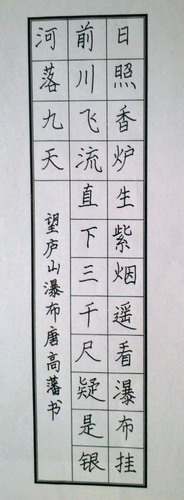 日照香炉生紫烟遥看瀑布挂
前川飞流直下三千尺疑是银
河落九天
望庐山瀑布唐高藩书